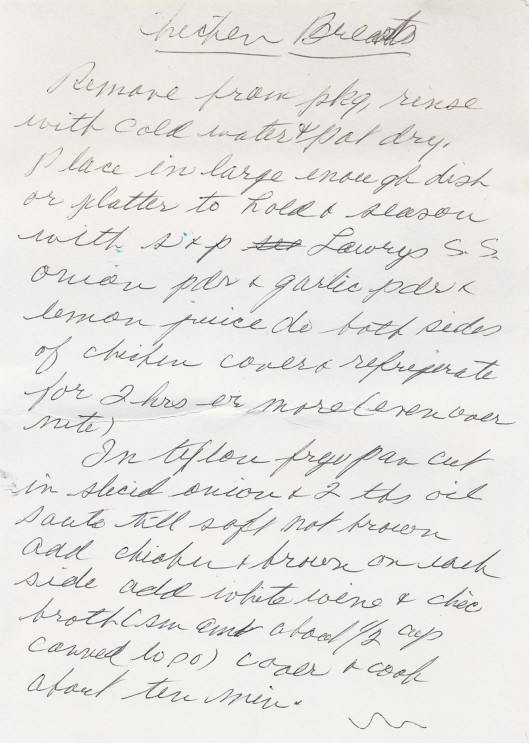 Chicken Breasts
Remove from pkg, rinse
with cold water & pat dry.
Place in large enough dish
or platter to hold & season
with s & p Lawrys S.S.
onion pdr & garlic pdr &
lemon juice do both sides
of chicken cover & refrigerate
for 2 hrs or more (even over
nite)
In teflon frypan cut
in sliced onion & 2 tbs oil
saute till soft not brown
add chicken & brown on each
side add white wine & chic
broth (sm amt about 1/2 cup
canned) cover & cook
about ten min.